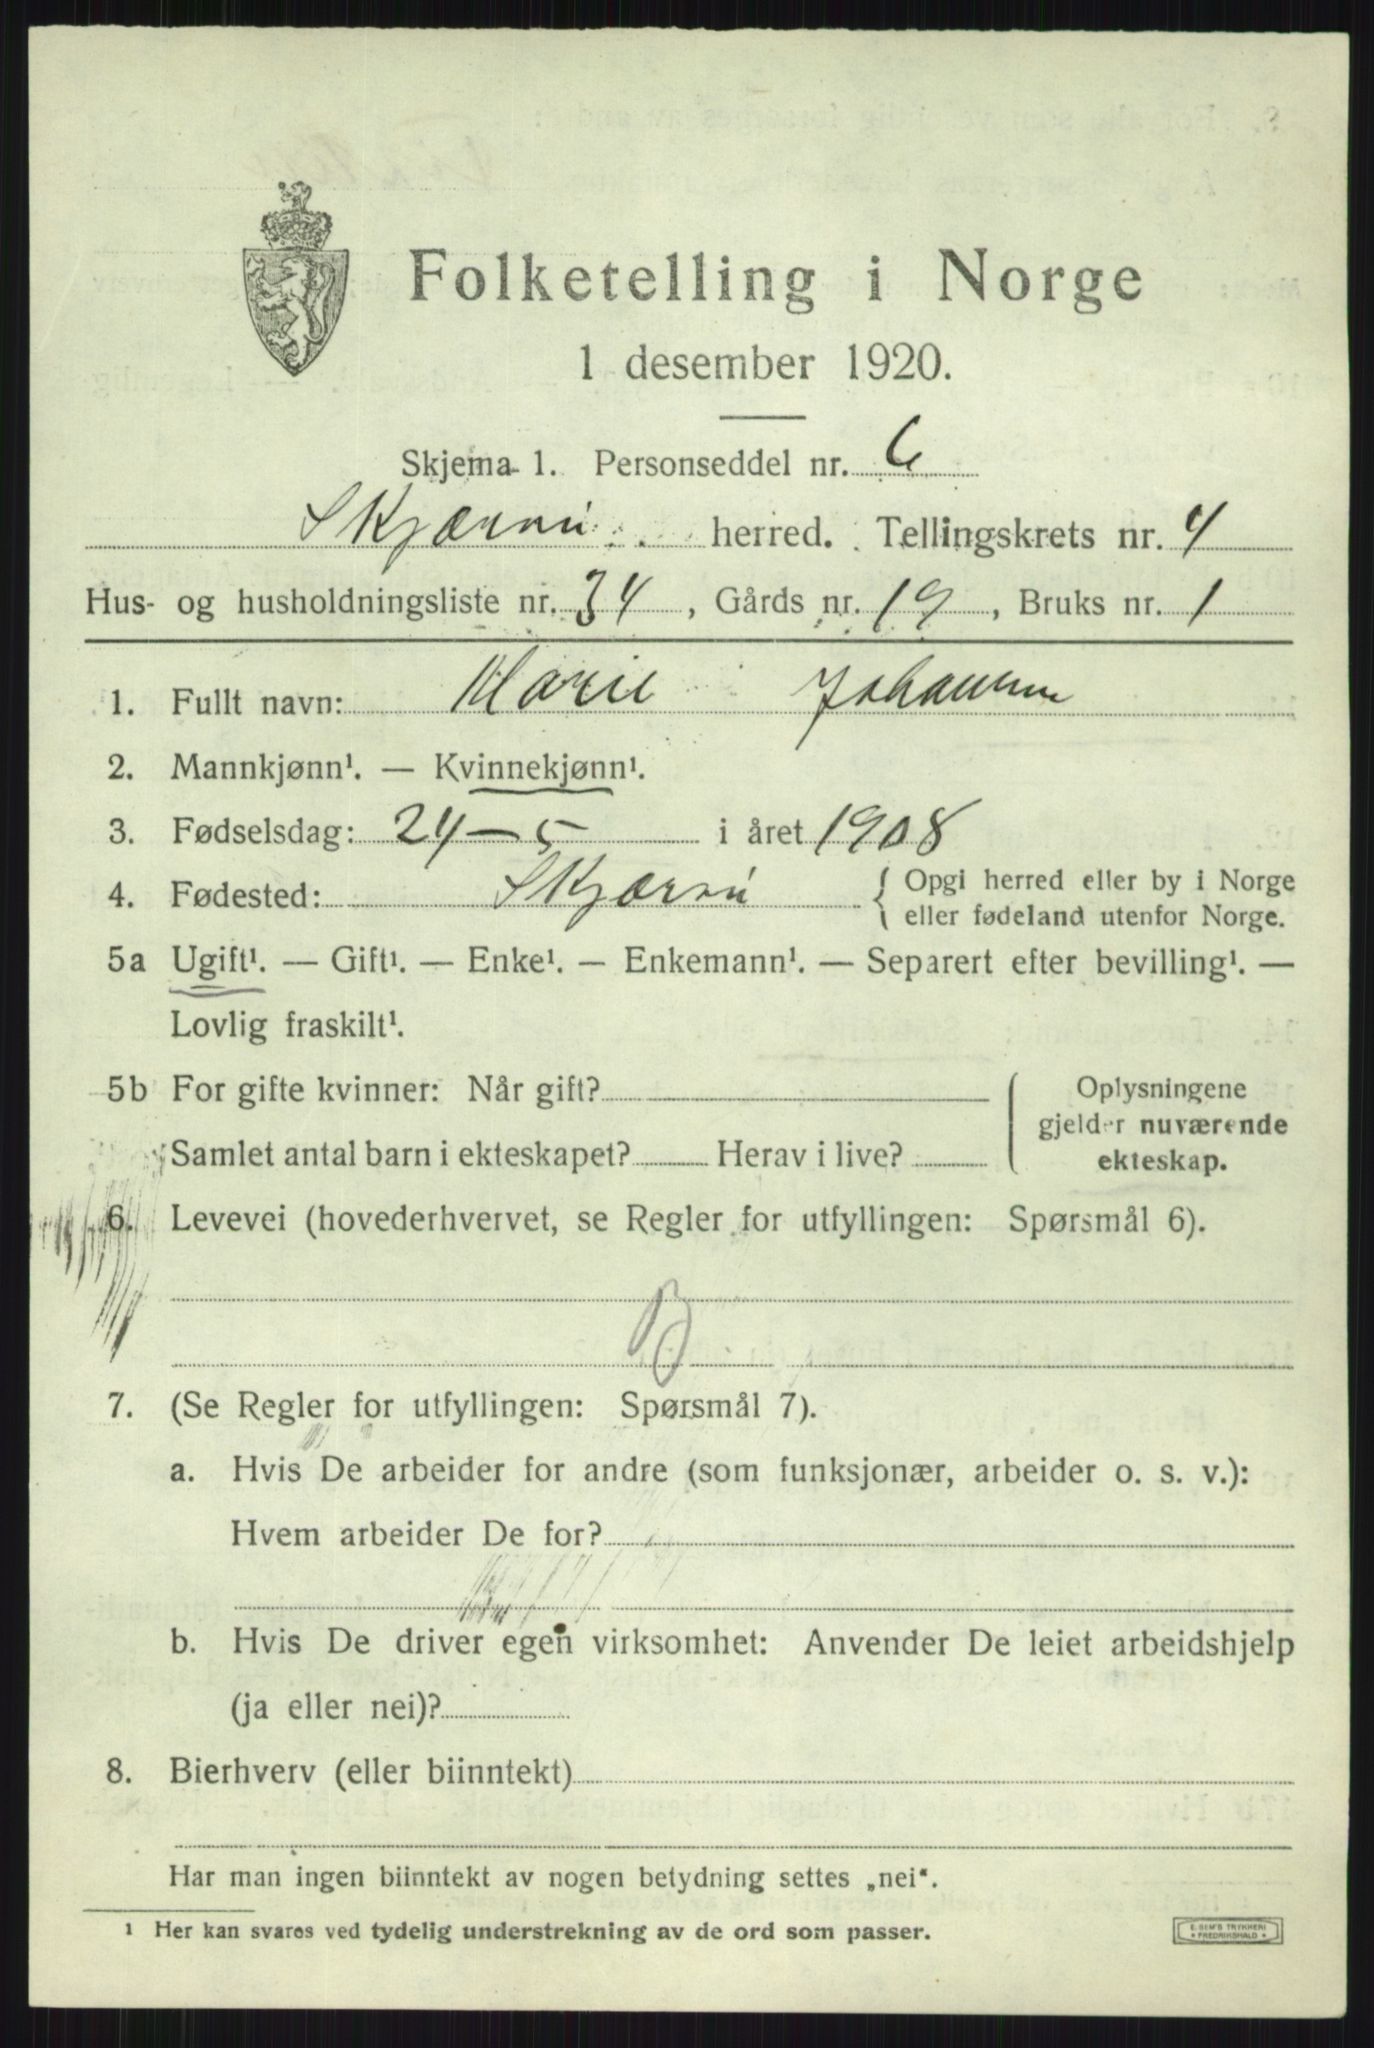 Folketelling i Norge
1 desember 1920.
Skjema 1. Personseddel nr. 6
Skjærvø herred. Tellingskrets nr. 4
Hus- og husholdningsliste nr. 34, Gårds nr. 19, Bruks nr. 1
1. Fullt navn: Marie
2. Mannkjønn¹. — Kvinnekjønn¹.
3. Fødselsdag: 24-5 i året 1908
4. Fødested: Skjærvø { Opgi herred eller by i Norge
eller fødeland utenfor Norge.
5a Ugift¹. — Gift¹. — Enke¹. — Enkemann¹. — Separert efter bevilling¹. —
Lovlig fraskilt¹.
5b For gifte kvinner: Når gift?
Samlet antal barn i ekteskapet? Herav i live?
Oplysningene
gjelder nuværende
ekteskap.
6. Levevei (hovederhvervet, se Regler for utfyllingen: Spørsmål 6).
B
7. (Se Regler for utfyllingen: Spørsmål 7).
a. Hvis De arbeider for andre (som funksjonær, arbeider o. s. v.):
Hvem arbeider De for?
b. Hvis De driver egen virksomhet: Anvender De leiet arbeidshjelp
(ja eller nei)?
8. Bierhverv (eller biinntekt)
Har man ingen biinntekt av nogen betydning settes „nei“.
¹ Her kan svares ved tydelig understrekning av de ord som passer.
E. SEM'S TRYKKERI
FREDRIKSHALD